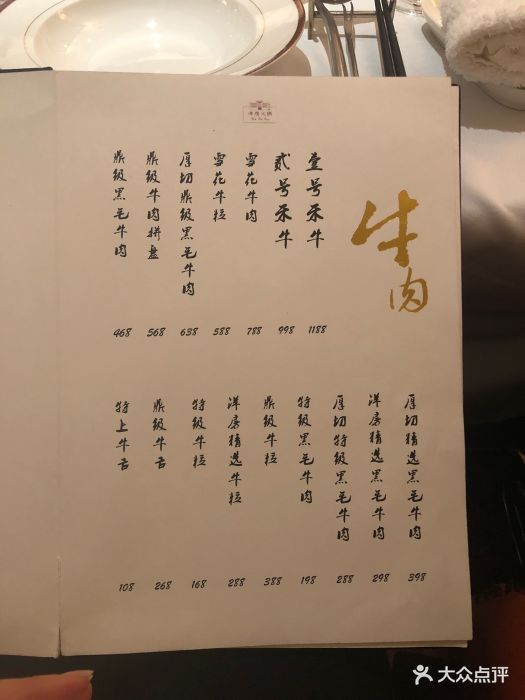 牛肉
壹号禾牛
1188
贰号禾牛
998
雪花牛肉
788
雪花牛粒
588
厚切鼎级黑毛牛肉
638
鼎级牛肉拼盘
568
鼎级黑毛牛肉
468
厚切精选黑毛牛肉
398
洋房精选黑毛牛肉
298
厚切特级黑毛牛肉
288
特级黑毛牛肉
198
鼎级牛粒
388
洋房精选牛粒
288
特级牛粒
168
鼎级牛舌
268
特上牛舌
108
大众点评